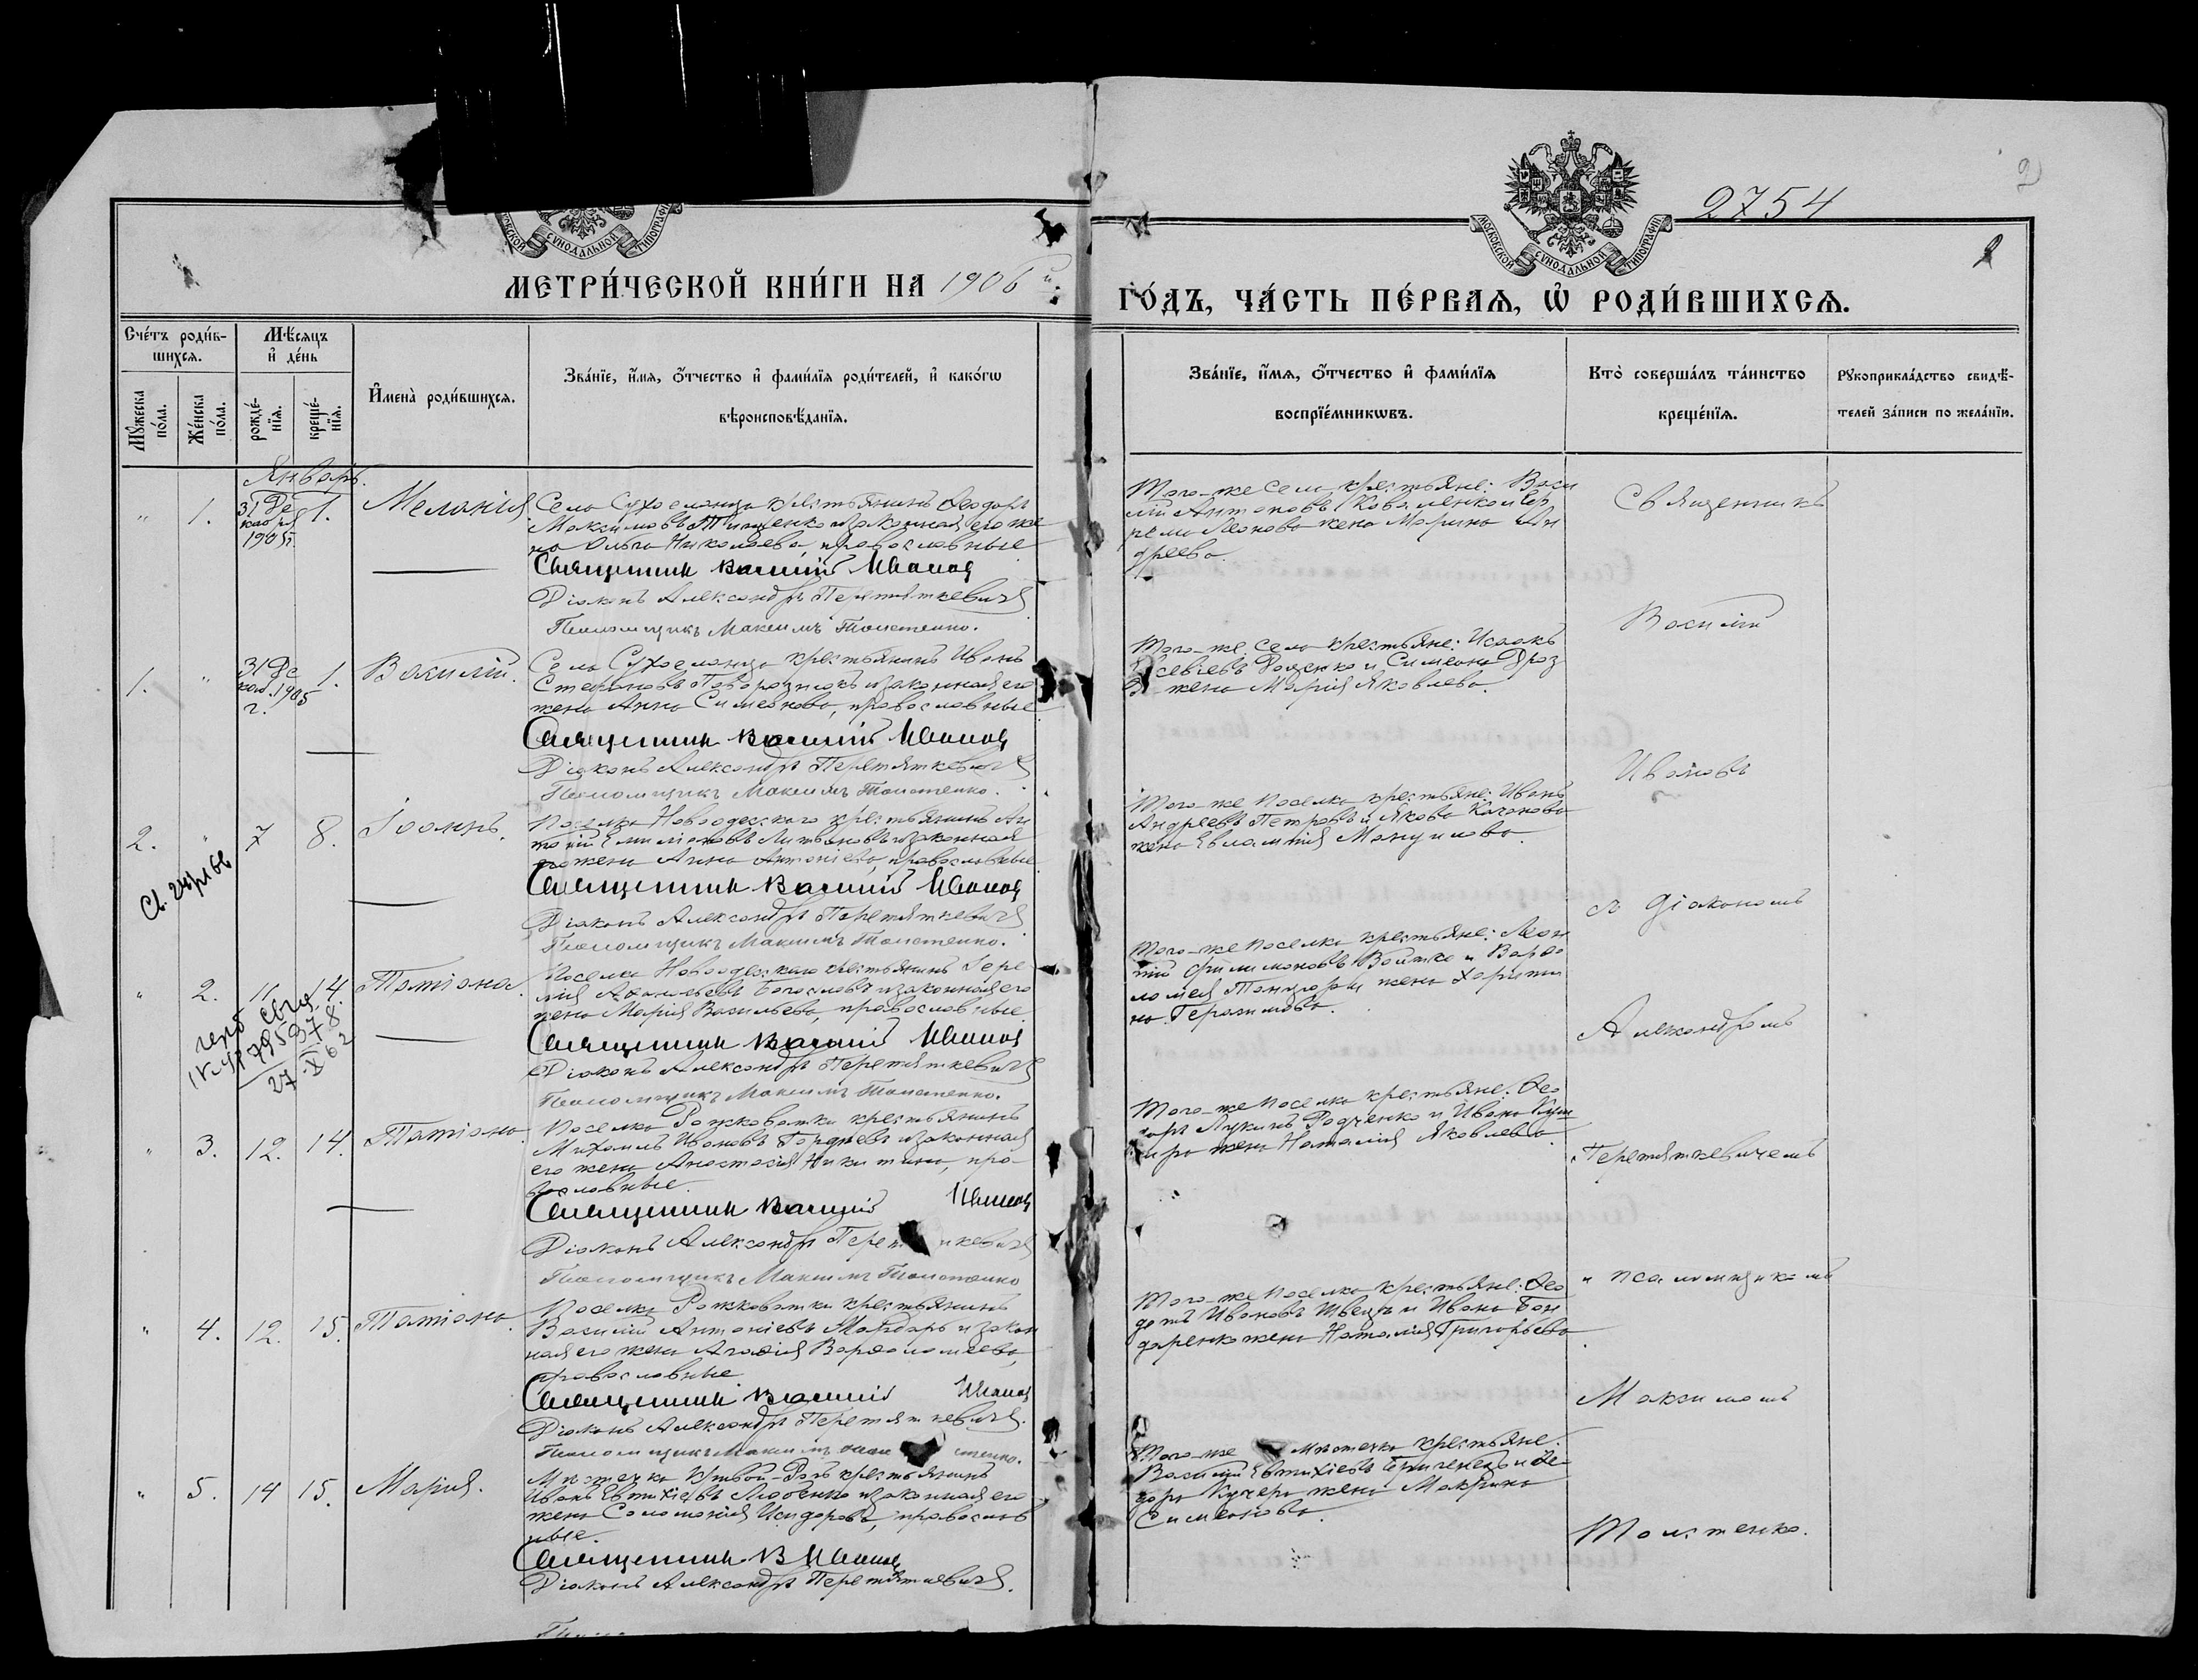 2
2754
2
МОСКОВСКОЙ СѴНОДАЛЬНОЙ ТИПОГРАФІИ
МЕТРИ́ЧЕСКОЙ КНИ́ГИ НА 1906 й
ГО́ДЪ, ЧА́СТЬ ПЕ́РВАѦ, Ѡ РОДИ́ВШИХСѦ.
Сче́тъ роди́в-
шихсѧ.
Мѣ́сѧцъ
и҆ де́нь
Мꙋ́жеска
по́ла.
Же́нска
по́ла.
рожде́-
нїѧ.
креще́-
нїѧ.
И҆мена̀ роди́вшихсѧ.
Зва́нїе, и҆́мѧ, ѻ҆́тчество и҆ фами́лїѧ роди́телей, и҆ како́гѡ
вѣроисповѣ́данїѧ.
Зва́нїе, и҆́мѧ, ѻ҆́тчество и҆ фами́лїѧ
воспрїе́мникѡвъ.
Кто̀ соверша́лъ та́инство
креще́нїѧ.
Рꙋкоприкла́дство свидѣ́-
телей за́писи по жела́нїю.
Январь.
" 1. 31 Де 1. Меланія
кабря
1905 г.
Села Сухоеланца крестьянинъ Ѳеодоръ
Максимовъ Тищенко и законная его же
на Ольга Николаева, православные
Священникъ Василій Ивановъ
Діаконъ Александръ Перетяткевичъ
Псаломщикъ Максимъ Толстенко.
Того-же села крестьяне: Васи
лій Антоновъ Коваленко и Ер
емы Леонова жена Марина Ан
дреева.
1. " 31 Де 1. Василій.
каб. 1905
г.
Села Сухоеланца крестьянинъ Иванъ
Стефановъ Поворознюкъ и законная его
жена Анна Симеонова, православные
Священникъ Василій Ивановъ
Діаконъ Александръ Перетяткевичъ
Псаломщикъ Максимъ Толстенко.
Того-же села крестьяне: Исаакъ
Евсевіевъ Доценко и Симеона Дроз
жена Марія Яковлева.
2. " 7 8. Іоаннъ.
Поселка Новоодесскаго крестьянинъ Ан
тоній Емиліановъ Литвиновъ и законная
его жена Анна Антоніева, православные
Священникъ Василій Ивановъ
Діаконъ Александръ Перетяткевичъ
Псаломщикъ Максимъ Толстенко.
Того-же поселка крестьяне: Иванъ
Андреевъ Петровъ и Якова Качанова
жена Евлампія Мануилова.
" 2. 11 14. Татіана.
Поселка Новоодесскаго крестьянинъ Іере
мія Аѳанасьевъ Богославъ и законная его
жена Марія Васильева, православные
Священникъ Василій Ивановъ
Діаконъ Александръ Перетяткевичъ
Псаломщикъ Максимъ Толстенко.
Того-же поселка крестьяне: Леон
тій Филимоновъ Войтке и Варѳо
ломея жена Харити
на Герасимова.
27.X 62
" 3. 12. 14. Татіана.
Поселка Рожковатки крестьянинъ
Михаилъ Ивановъ Гордѣевъ и законная
его жена Анастасія Никитина, пра-
вославные.
Священникъ Василій Ивановъ
Діаконъ Александръ Перетяткевичъ
Псаломщикъ Максимъ Толстенко
Того-же поселка крестьяне: Ѳео
доръ Лукинъ Радченко и Ивана Куш
нира жена Наталія Яковлева.
" 4. 12. 15. Татіана.
Поселка Рожковатки крестьянинъ
Василій Антоніевъ Мардарь и закон
ная его жена Агаѳія Варѳоломеева,
православные
Священникъ Василій Ивановъ
Діаконъ Александръ Перетяткевичъ.
Псаломщикъ Максимъ Толстенко.
Того-же поселка крестьяне: Ѳео
дотъ Ивановъ Швецъ и Ивана Бон
даренка жена Наталія Григорьева.
" 5. 14 15. Марія.
Мѣстечка Кривой-Рогъ крестьянинъ
Иванъ Евтихіевъ Любенко и законная его
жена Соломонія Исидорова, православ
ные.
Священникъ В Ивановъ
Діаконъ Александръ Перетяткевичъ.
Того-же мѣстечка крестьяне:
Василій Евтихіевъ Гриченко и Ѳе-
дора Кучера жена Макрина
Симеонова.
Священникъ
Василій
Ивановъ
съ діакономъ
Александромъ
Перетяткевичемъ
и псаломщикомъ
Максимомъ
Толстенко.